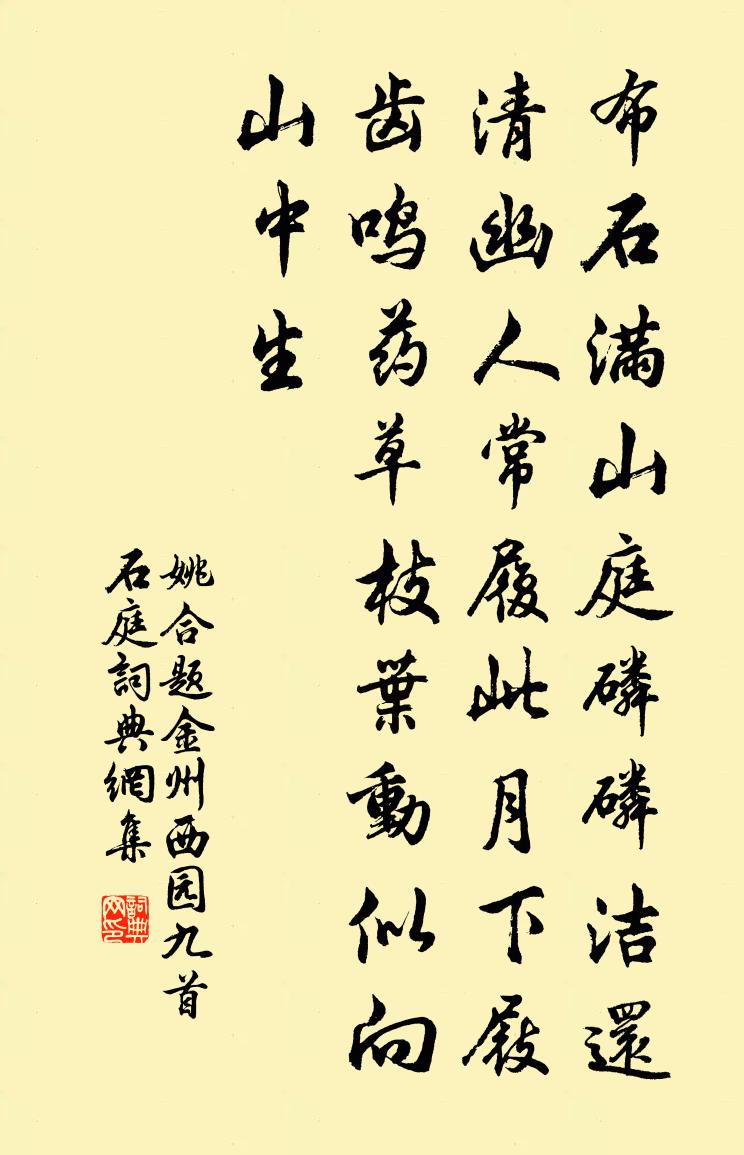 布石满山庭磷磷洁還
清幽人常履此月下屐
齿鸣药草枝葉動似向
山中生
姚合题金州西园九首
石庭詞典網集
詞典
网印